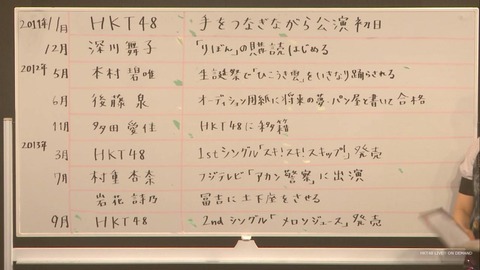 2011年11月 HKT48 手をつなぎながら公演初日
12月 深川舞子 「りぼん」の購読はじめる
2012年5月 本村碧唯 生誕祭で「ひこうき雲」をいきなり踊らされる
6月 後藤泉 オーディション用紙に将来の夢・パン屋と書いて合格
11月 多田愛佳 HKT48に移籍
2013年3月 HKT48 1stシングル「スキ!スキ!スキップ!」発売
7月 村重杏奈 フジテレビ「アカン警察」に出演
岩花詩乃 冨吉に土下座をさせる
9月 HKT48 2ndシングル「メロンジュース」発売